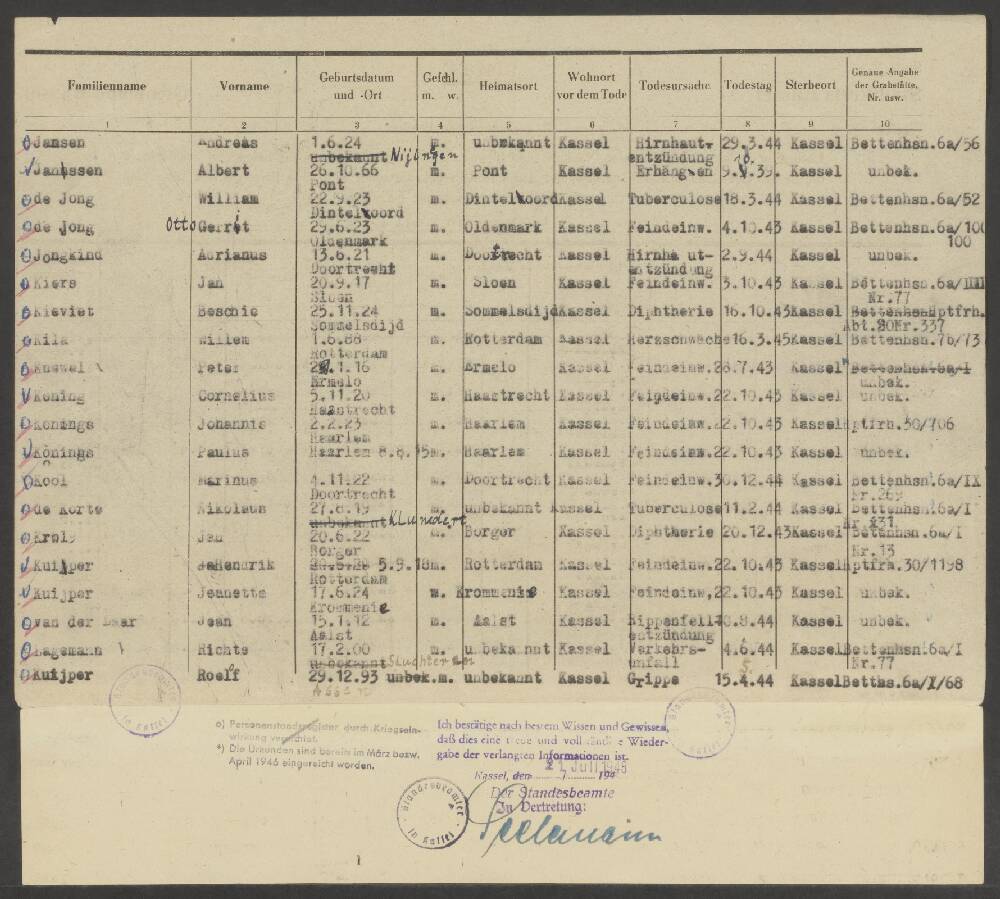 Familienname Vorname Geburtsdatum und -Ort Geschl. m. w. Heimatsort Wohnort vor dem Tode Todesursache Todestag Sterbeort Genaue Angabe der Grabstätte, Nr. usw.
1 2 3 4 5 6 7 8 9 10
Jansen Andreas 1.6.24 m. unbekannt Kassel Hirnhaut- 29.3.44 Kassel Bettenhsn.6a/56
unbekannt Nijmgen entzündung
Janssen Albert 26.10.66 m. Pont Kassel Erhängen Kassel unbek.
Pont
de Jong William 22.9.23 m. Dinteloord Kassel Tuberculose 18.3.44 Kassel Bettenhsn.6a/52
Dinteloord
de Jong Otto Gerrit 29.6.23 m. Oldenmark Kassel Feindeinw. 4.10.43 Kassel Bettenhsn.6a/100
Oldenmark 100
Jongkind Adrianus 13.6.21 m. Doortrecht Kassel Hirnhaut- 2.9.44 Kassel unbek.
Doortrecht entzündung
Kiers Jan 20.9.17 m. Sloen Kassel Feindeinw. 3.10.43 Kassel Bettenhsn.6a/IIII
Sloen Nr.77
Kieviet Beschic 25.11.24 m. Sommelsdijd Kassel Diphtherie 16.10.43 Kassel Hptfrh.
Sommelsdijd Abt.20Nr.337
Kila Willem 1.6.88 m. Rotterdam Kassel Herzschwäche 16.3.45 Kassel Bettenhsn.7b/73
Rotterdam
Knewel Peter 1.16 m. Ermelo Kassel Feindeinw. 28.7.43 Kassel Bettenhsn.6a/I
Ermelo unbek.
Koning Cornelius 5.11.20 m. Haastrecht Kassel Feindeinw. 22.10.43 Kassel unbek.
Haastrecht
Konings Johannis 2.2.23 m. Haarlem Kassel Feindeinw. 22.10.43 Kassel Hptfrh.30/706
Haarlem
Könings Paulus Haarlem 8.6.15 m. Haarlem Kassel Feindeinw. 22.10.43 Kassel unbek.
Kool Marinus 4.11.22 m. Doortrecht Kassel Feindeinw. 30.12.44 Kassel Bettenhsn.6a/IX
Doortrecht Nr.269
de Korte Nikolaus 27.8.19 m. unbekannt Kassel Tuberculose 11.2.44 Kassel Bettenhsn.6a/I
unbekannt Klundert Nr.231
Krols Jan 20.6.22 m. Borger Kassel Diphtherie 20.12.43 Kassel Bettenhsn.6a/I
Borger Nr.13
Kuijper Hendrik 5.9.18 m. Rotterdam Kassel Feindeinw. 22.10.43 Kassel Hptfrh.30/1198
Rotterdam
Kuijper Jeanette 17.6.24 w. Krommenie Kassel Feindeinw, 22.10.43 Kassel unbek.
Krommenie
van der Laar Jean 15.1.12 m. Aalst Kassel Rippenfell- 8.44 Kassel unbek.
Aalst entzündung
Hagemann Richte 17.2.00 m. unbekannt Kassel Verkehrs- 4.6.44 Kassel Bettenhsn.6a/I
unbekannt unfall Nr.77
Kuijper Roelf 29.12.93 unbek. m. unbekannt Kassel Grippe 15.4.44 Kassel Betths.6a/I/68
Assen
o) Personenstandsregister durch Kriegsein-
wirkung vernichtet.
*) Die Urkunden sind bereits im März bezw.
April 1946 eingereicht worden.
Ich bestätige nach bestem Wissen und Gewissen,
daß dies eine treue und vollständige Wieder-
gabe der verlangten Informationen ist.
Kassel, den 21. Juli 194
Der Standesbeamte
In Vertretung:
Standesbeamter
in Kassel
Seelmann